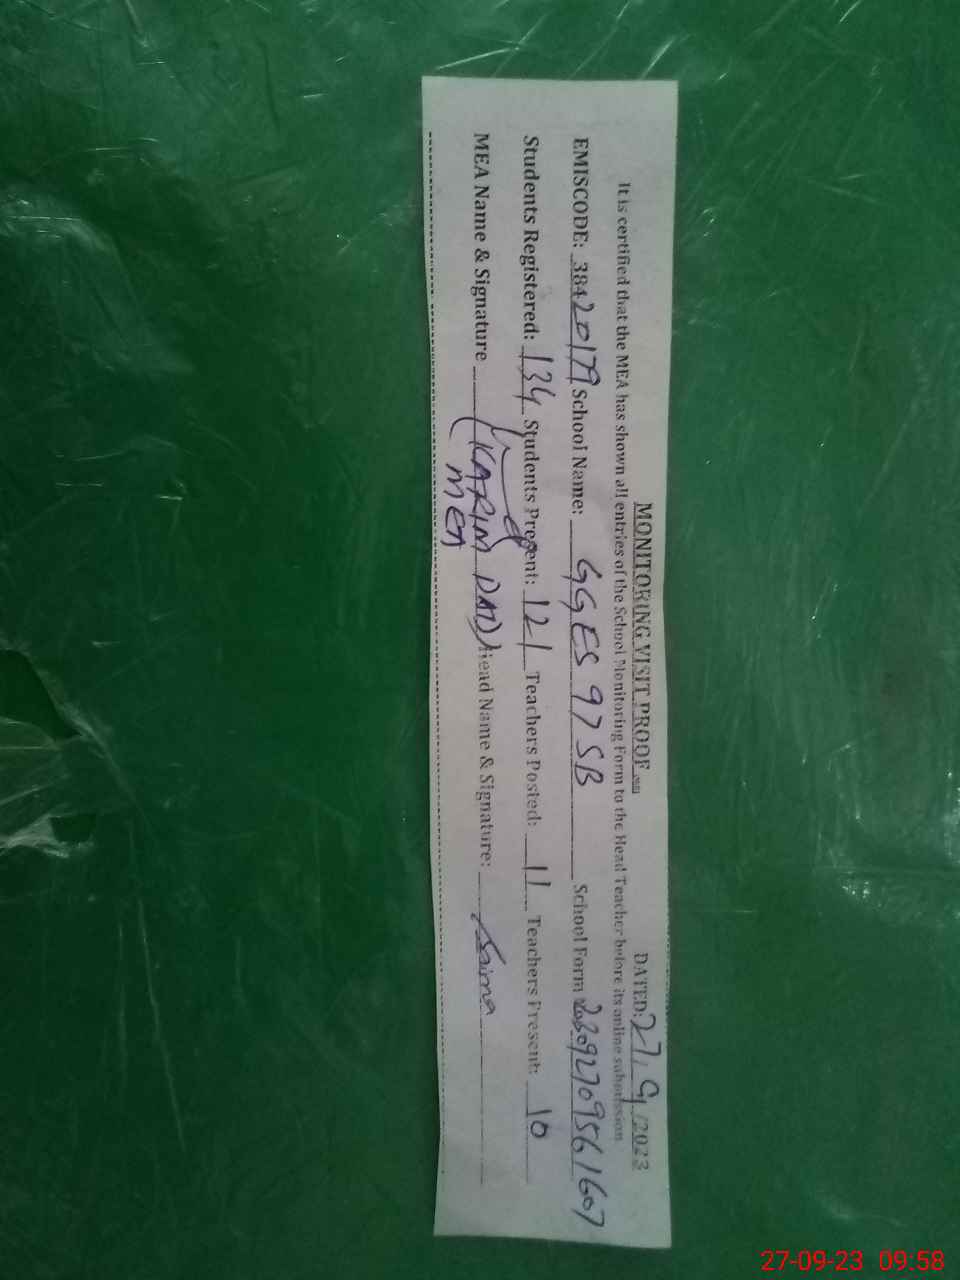 MONITORING VISIT PROOF
DATED: 27/9/2023
It is certified that the MEA has shown all entries of the School Monitoring Form to the Head Teacher before its online submission.
EMISCODE: 38420179 School Name: GGES 97 SB School Form
Students Registered: 134 Students Present: 121 Teachers Posted: 11 Teachers Present: 10
MEA Name & Signature (KARIM DAD) Head Name & Signature:
MEA
27-09-23 09:58